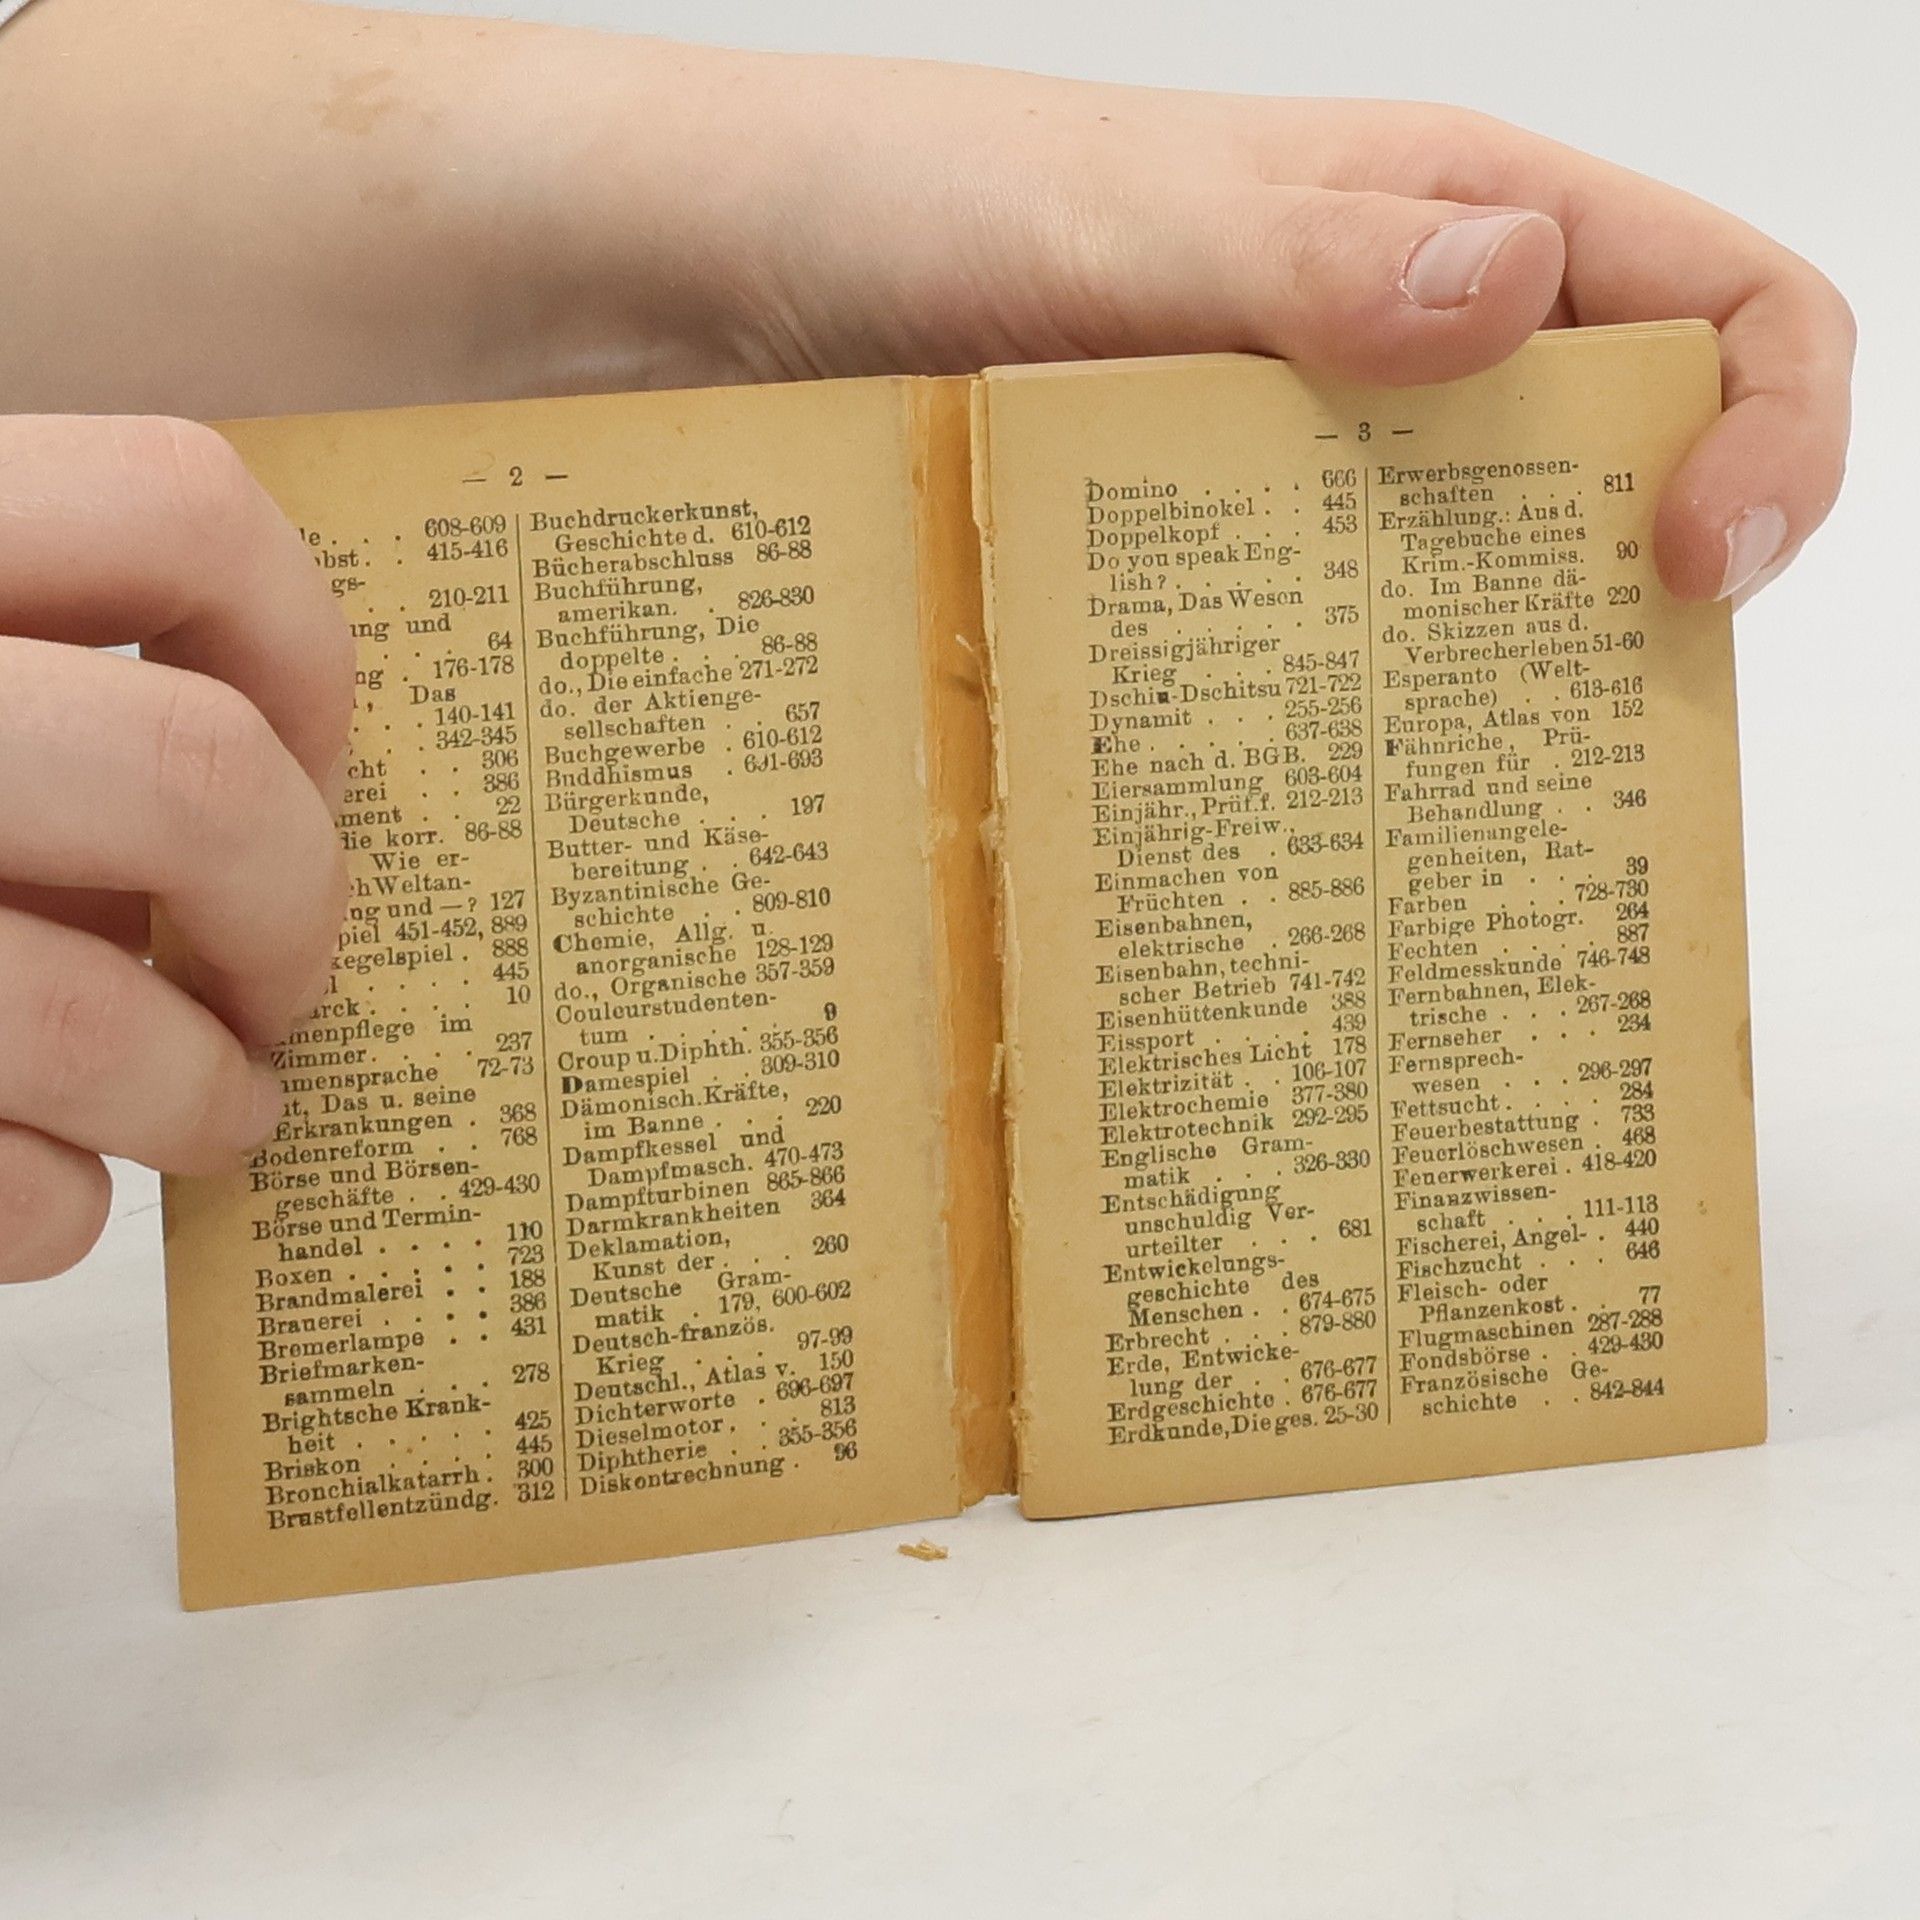 — 2 —
608-609
415-416
210-211
und
64
176-178
Das
140-141
342-345
306
386
22
die korr. 86-88
Wie er-
Weltan-
und —? 127
451-452, 889
888
445
10
im
Zimmer. . . . 237
72-73
Das u. seine
Erkrankungen . 368
Bodenreform . . 768
Börse und Börsen-
geschäfte . . 429-430
Börse und Termin-
handel . . . . 110
Boxen . . . . . 723
Brandmalerei . . 188
Brauerei . . . . 386
Bremerlampe . . 431
Briefmarken-
sammeln . . . 278
Brightsche Krank-
heit . . . . . 425
Briskon . . . . 445
Bronchialkatarrh . 300
Brustfellentzündg. 312
Buchdruckerkunst,
Geschichte d. 610-612
Bücherabschluss 86-88
Buchführung,
amerikan. . 826-830
Buchführung, Die
doppelte . . . 86-88
do., Die einfache 271-272
do. der Aktienge-
sellschaften . . 657
Buchgewerbe . 610-612
Buddhismus . 691-693
Bürgerkunde,
Deutsche . . . 197
Butter- und Käse-
bereitung . . 642-643
Byzantinische Ge-
schichte . . 809-810
Chemie, Allg. u.
anorganische 128-129
do., Organische 357-359
Couleurstudenten-
tum . . . . . 9
Croup u. Diphth. 355-356
Damespiel . . 309-310
Dämonisch. Kräfte,
im Banne . . . 220
Dampfkessel und
Dampfmasch. 470-473
Dampfturbinen 865-866
Darmkrankheiten 364
Deklamation,
Kunst der . . . 260
Deutsche Gram-
matik . 179, 600-602
Deutsch-französ.
Krieg . . . 97-99
Deutschl., Atlas v. 150
Dichterworte . 696-697
Dieselmotor . . . 813
Diphtherie . . 355-356
Diskontrechnung . 96
— 3 —
Domino . . . . 666
Doppelbinokel . . 445
Doppelkopf . . . 453
Do you speak Eng-
lish? . . . . . 348
Drama, Das Wesen
des . . . . . 375
Dreissigjähriger
Krieg . . . 845-847
Dschiu-Dschitsu 721-722
Dynamit . . . 255-256
Ehe . . . . . 637-638
Ehe nach d. BGB. 229
Eiersammlung 603-604
Einjähr., Prüf. f. 212-213
Einjährig-Freiw.,
Dienst des . 633-634
Einmachen von
Früchten . . 885-886
Eisenbahnen,
elektrische . 266-268
Eisenbahn, techni-
scher Betrieb 741-742
Eisenhüttenkunde 388
Eissport . . . . 439
Elektrisches Licht 178
Elektrizität . . 106-107
Elektrochemie 377-380
Elektrotechnik 292-295
Englische Gram-
matik . . . 326-330
Entschädigung
unschuldig Ver-
urteilter . . . 681
Entwickelungs-
geschichte des
Menschen . . 674-675
Erbrecht . . . 879-880
Erde, Entwicke-
lung der . . 676-677
Erdgeschichte . 676-677
Erdkunde, Die ges. 25-30
Erwerbsgenossen-
schaften . . . 811
Erzählung.: Aus d.
Tagebuche eines
Krim.-Kommiss. 90
do. Im Banne dä-
monischer Kräfte 220
do. Skizzen aus d.
Verbrecherleben 51-60
Esperanto (Welt-
sprache) . . 613-616
Europa, Atlas von 152
Fähnriche, Prü-
fungen für . 212-213
Fahrrad und seine
Behandlung . . 346
Familienangele-
genheiten, Rat-
geber in . . . 39
Farben . . . 728-730
Farbige Photogr. 264
Fechten . . . . 887
Feldmesskunde 746-748
Fernbahnen, Elek-
trische . . . 267-268
Fernseher . . . 234
Fernsprech-
wesen . . . 296-297
Fettsucht . . . . 284
Feuerbestattung . 733
Feuerlöschwesen . 468
Feuerwerkerei . 418-420
Finanzwissen-
schaft . . . 111-113
Fischerei, Angel- . 440
Fischzucht . . . 646
Fleisch- oder
Pflanzenkost . . 77
Flugmaschinen 287-288
Fondsbörse . . 429-430
Französische Ge-
schichte . . 842-844